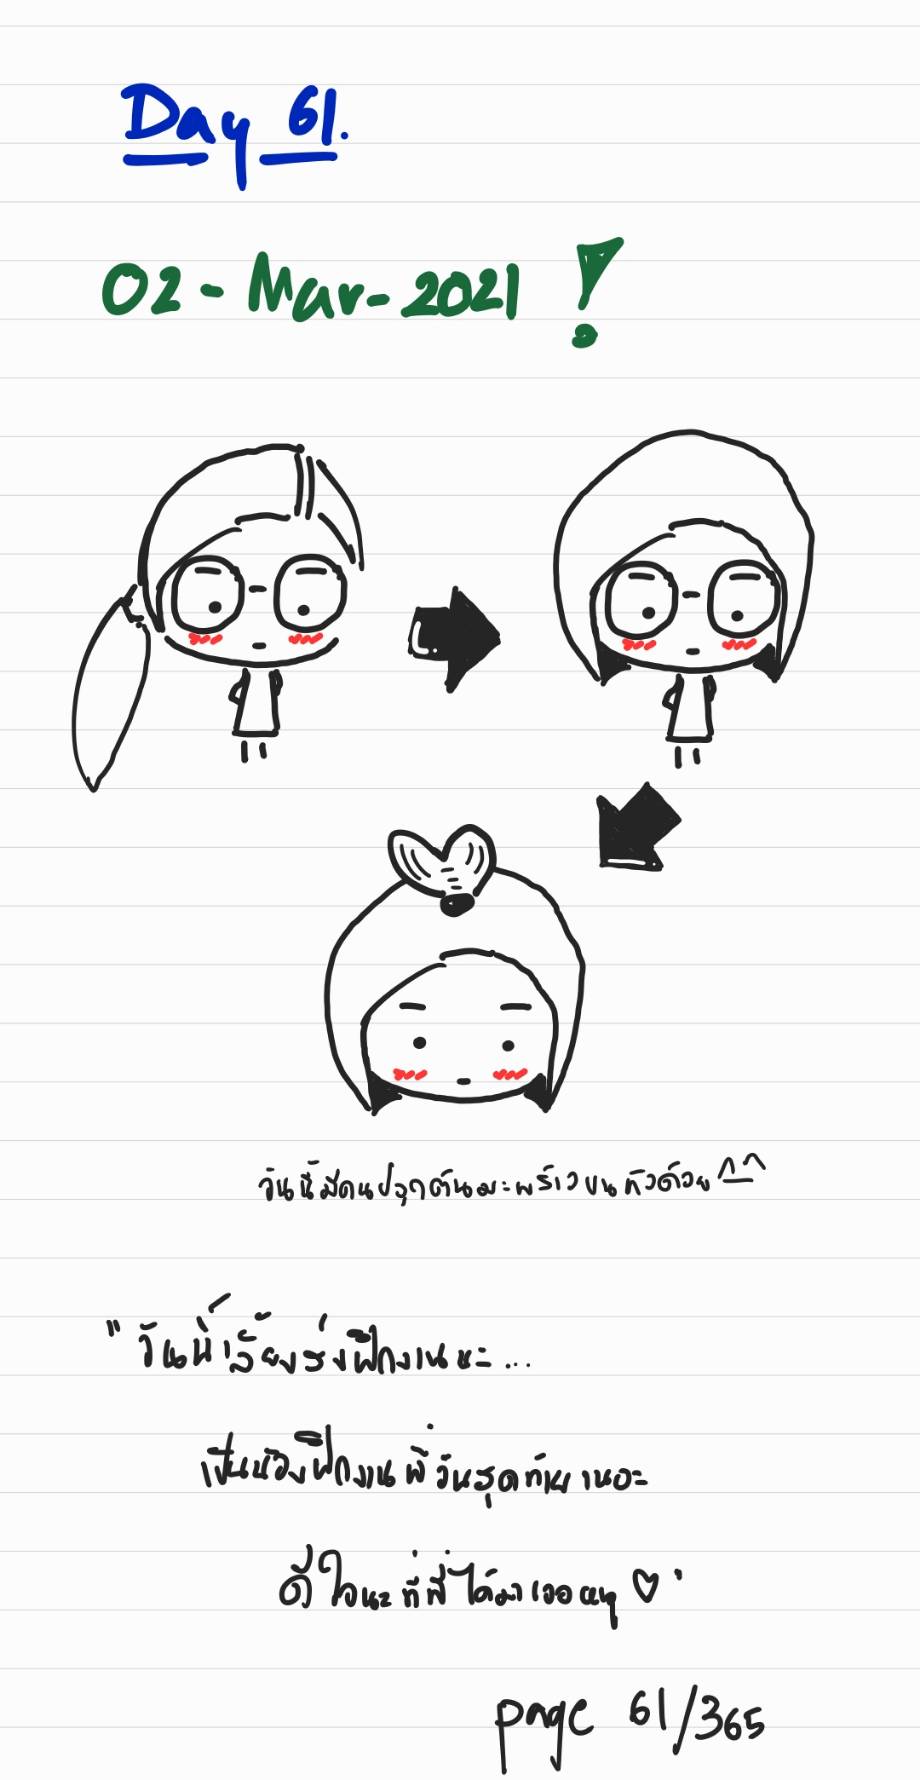 Day 61.
02-Mar-2021 !
วันนี้มีคนปลูกต้นมะพร้าวบนหัวด้วย ^^
"วันนี้เลี้ยงส่งฝึกงานนะ...
เป็นน้องฝึกงานพี่วันสุดท้ายเนอะ
ดีใจนะที่พี่ได้มาเจอหนู ♡"
page 61/365